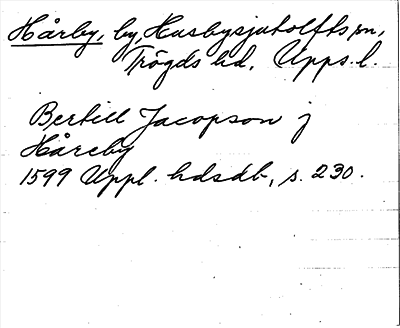 Hårby, by, Husbysjutolfts sn,
Trögds hd. Upps. l.
Bertill Jacopson j
Håreby
1599 Uppl. hdsdb, s. 230.